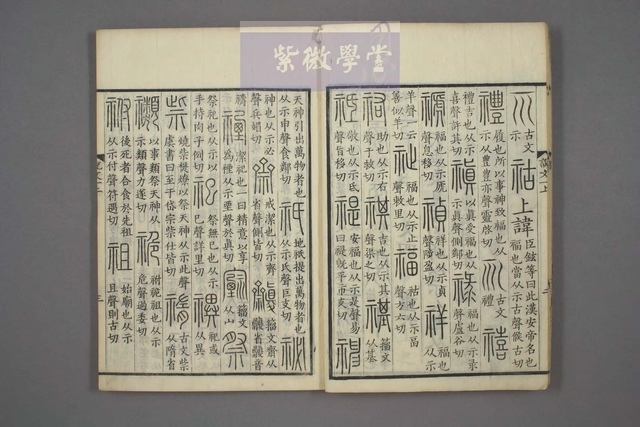 紫微學堂
示 古文示 祜 上諱 臣鉉等曰此漢安帝名也福也當从示古聲候古切
禮 履也所以事神致福也从示从豊豊亦聲靈啓切 古文禮 禧
禮吉也从示喜聲許其切 禛 以真受福也从示真聲側鄰切 祿 福也从示录聲盧谷切
禠 福也从示虒聲息移切 禎 祥也从示貞聲陟盈切 祥 福也从示
羊聲一云善似羊切 祉 福也从示止聲敕里切 福 祐也从示畐聲方六切
祐 助也从示右聲于救切 祺 吉也从示其聲渠之切 禥 籒文从基
祗 敬也从示氐聲旨移切 禔 安福也从示是聲易曰禔既平市支切 神
天神引出萬物者也从示申聲食鄰切 祇 地祇提出萬物者也从示氏聲巨支切 祕
神也从示必聲兵媚切 齋 戒潔也从示齊省聲側皆切 籒文齋从𥜻省𥜻音
禱 禋 潔祀也一曰精意以享爲禋从示垔聲於真切 籒文从宀 祭
祭祀也从示以手持肉子例切 祀 祭無已也从示巳聲詳里切 禩 祀或从異
祡 燒祡樊燎以祭天神从示此聲虞書曰至于岱宗祡仕皆切 古文祡从隋省
禷 以事類祭天神从示類聲力遂切 祪 祔祪祖也从示危聲過委切
祔 後死者合食於先祖从示付聲符遇切 祖 始廟也从示且聲則古切